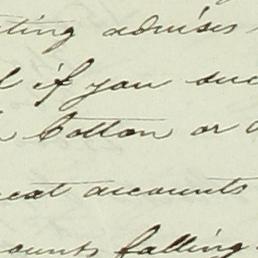 ting advises
if you suc
Cotton or
eat accounts
ounts falling